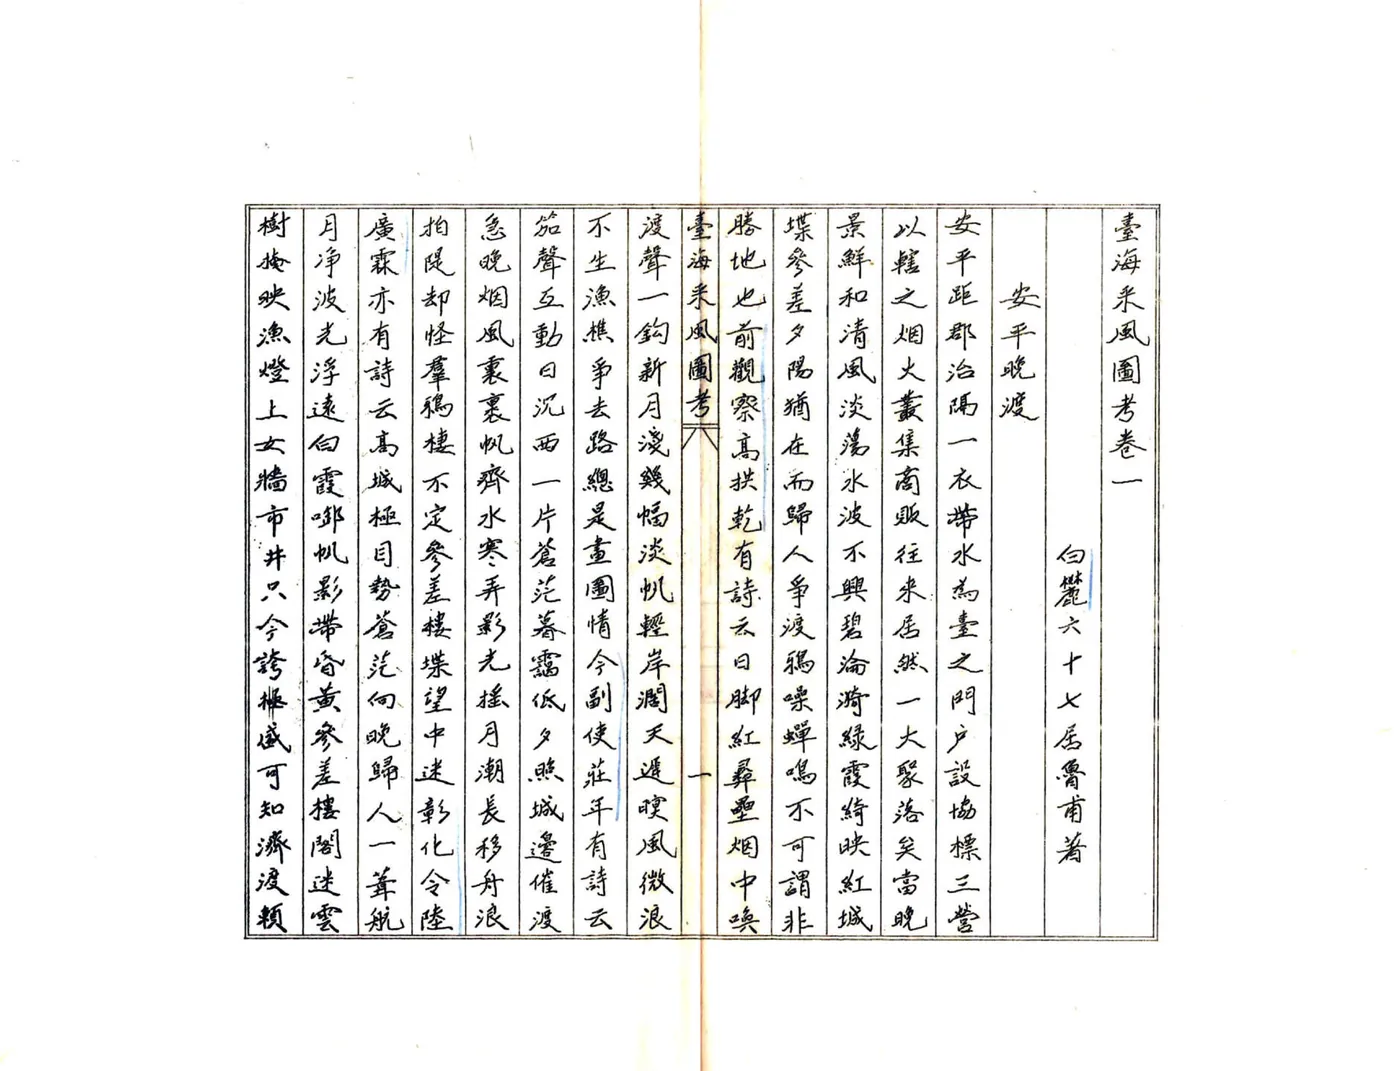 臺海采風圖考卷一
白麓六十七居魯甫著
安平晚渡
安平距郡治隔一衣帶水為臺之門户設協標三營
以轄之烟火叢集商販往来居然一大聚落矣當晚
景鮮和清風淡蕩水波不興碧淪漪綠霞綺映紅城
堞參差夕陽猶在而歸人爭渡鴉噪蟬鳴不可謂非
勝地也前觀察高拱乾有詩云日脚紅彞壘烟中喚
臺海采風圖考 一
渡聲一鈎新月淺幾幅淡帆輕岸濶天遲暝風微浪
不生漁樵爭去路總是畫圖情今副使莊年有詩云
笳聲互動日沉西一片蒼茫暮靄低夕照城邊催渡
急晚烟風裏裹帆齊水寒弄影光摇月潮長移舟浪
拍隄却怪羣鴉棲不定參差樓堞望中迷彰化令陸
廣霖亦有詩云高城極目勢蒼茫向晚歸人一葦航
月净波光浮遠白霞啣帆影帶昏黃參差樓閣迷雲
樹掩映漁燈上女牆市井只今誇極盛可知濟渡頼